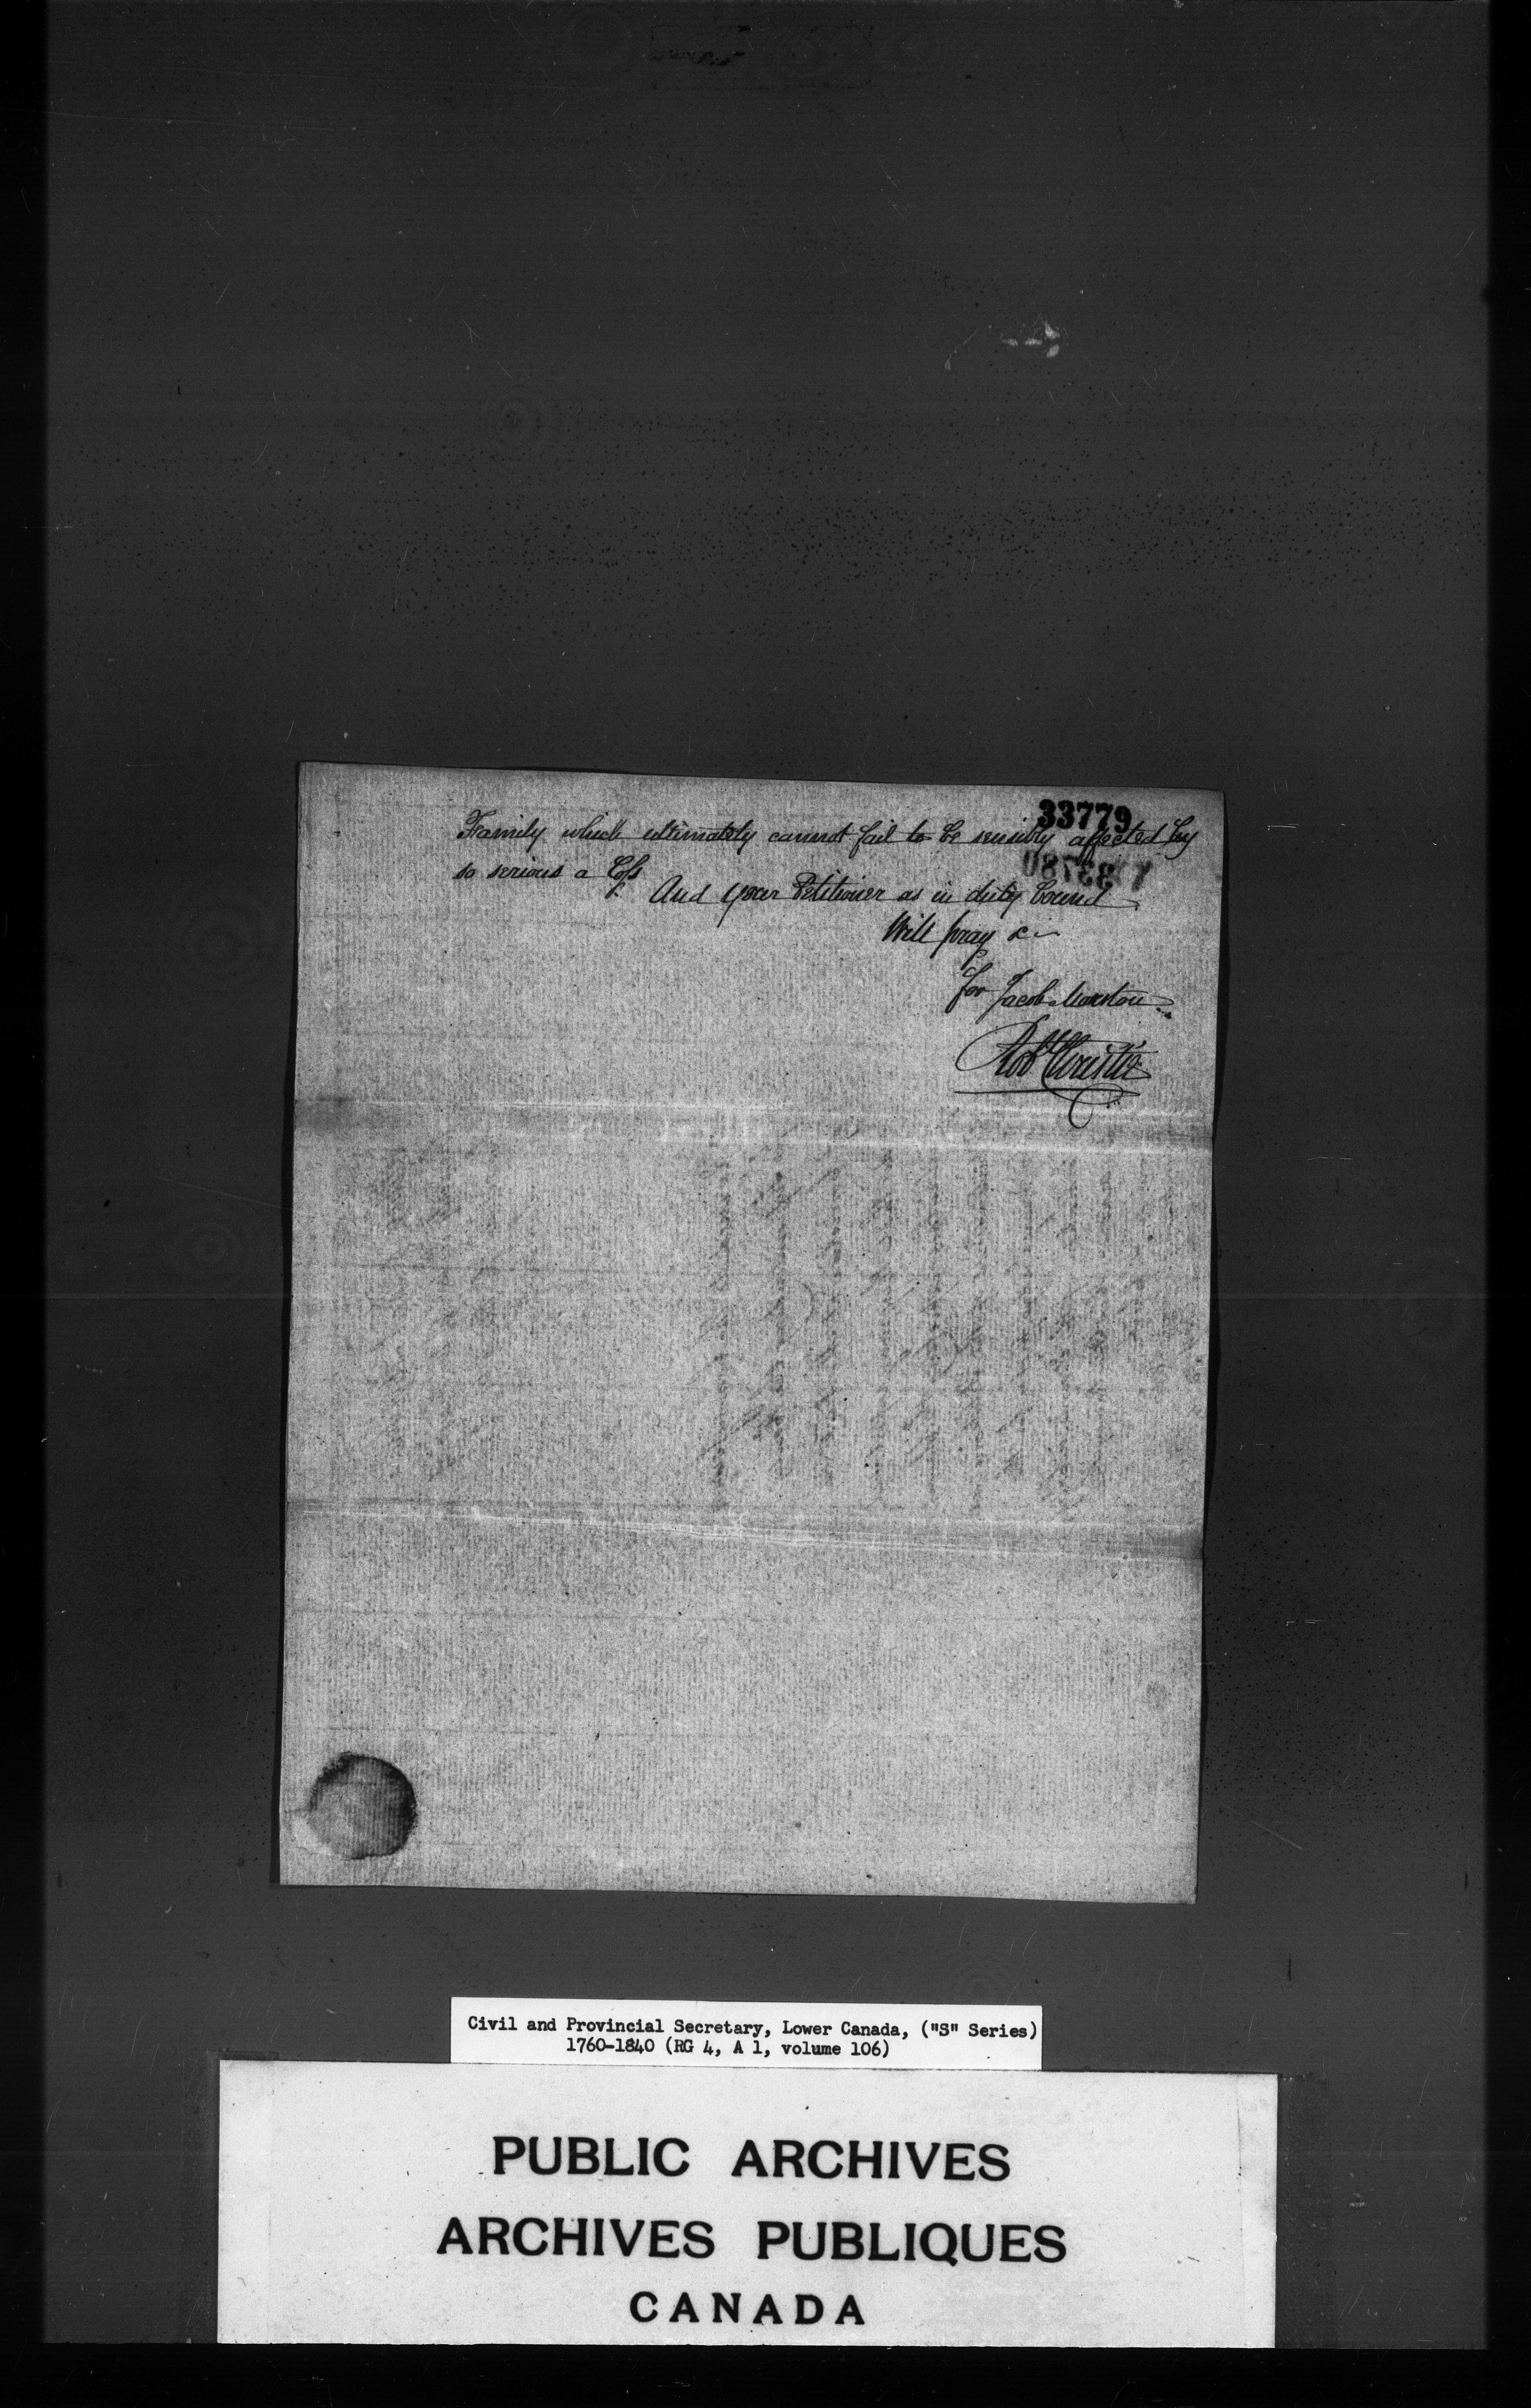 33779
Family which ultimately cannot fail to be sensibly affected by
so serious a Loss
And your Petitioner as in duty bound
Will pray &c
for Jacob Marston
Robt Christie
Civil and Provincial Secretary, Lower Canada, ("S" Series)
1760-1840 (RG 4, A 1, volume 106)
PUBLIC ARCHIVES
ARCHIVES PUBLIQUES
CANADA